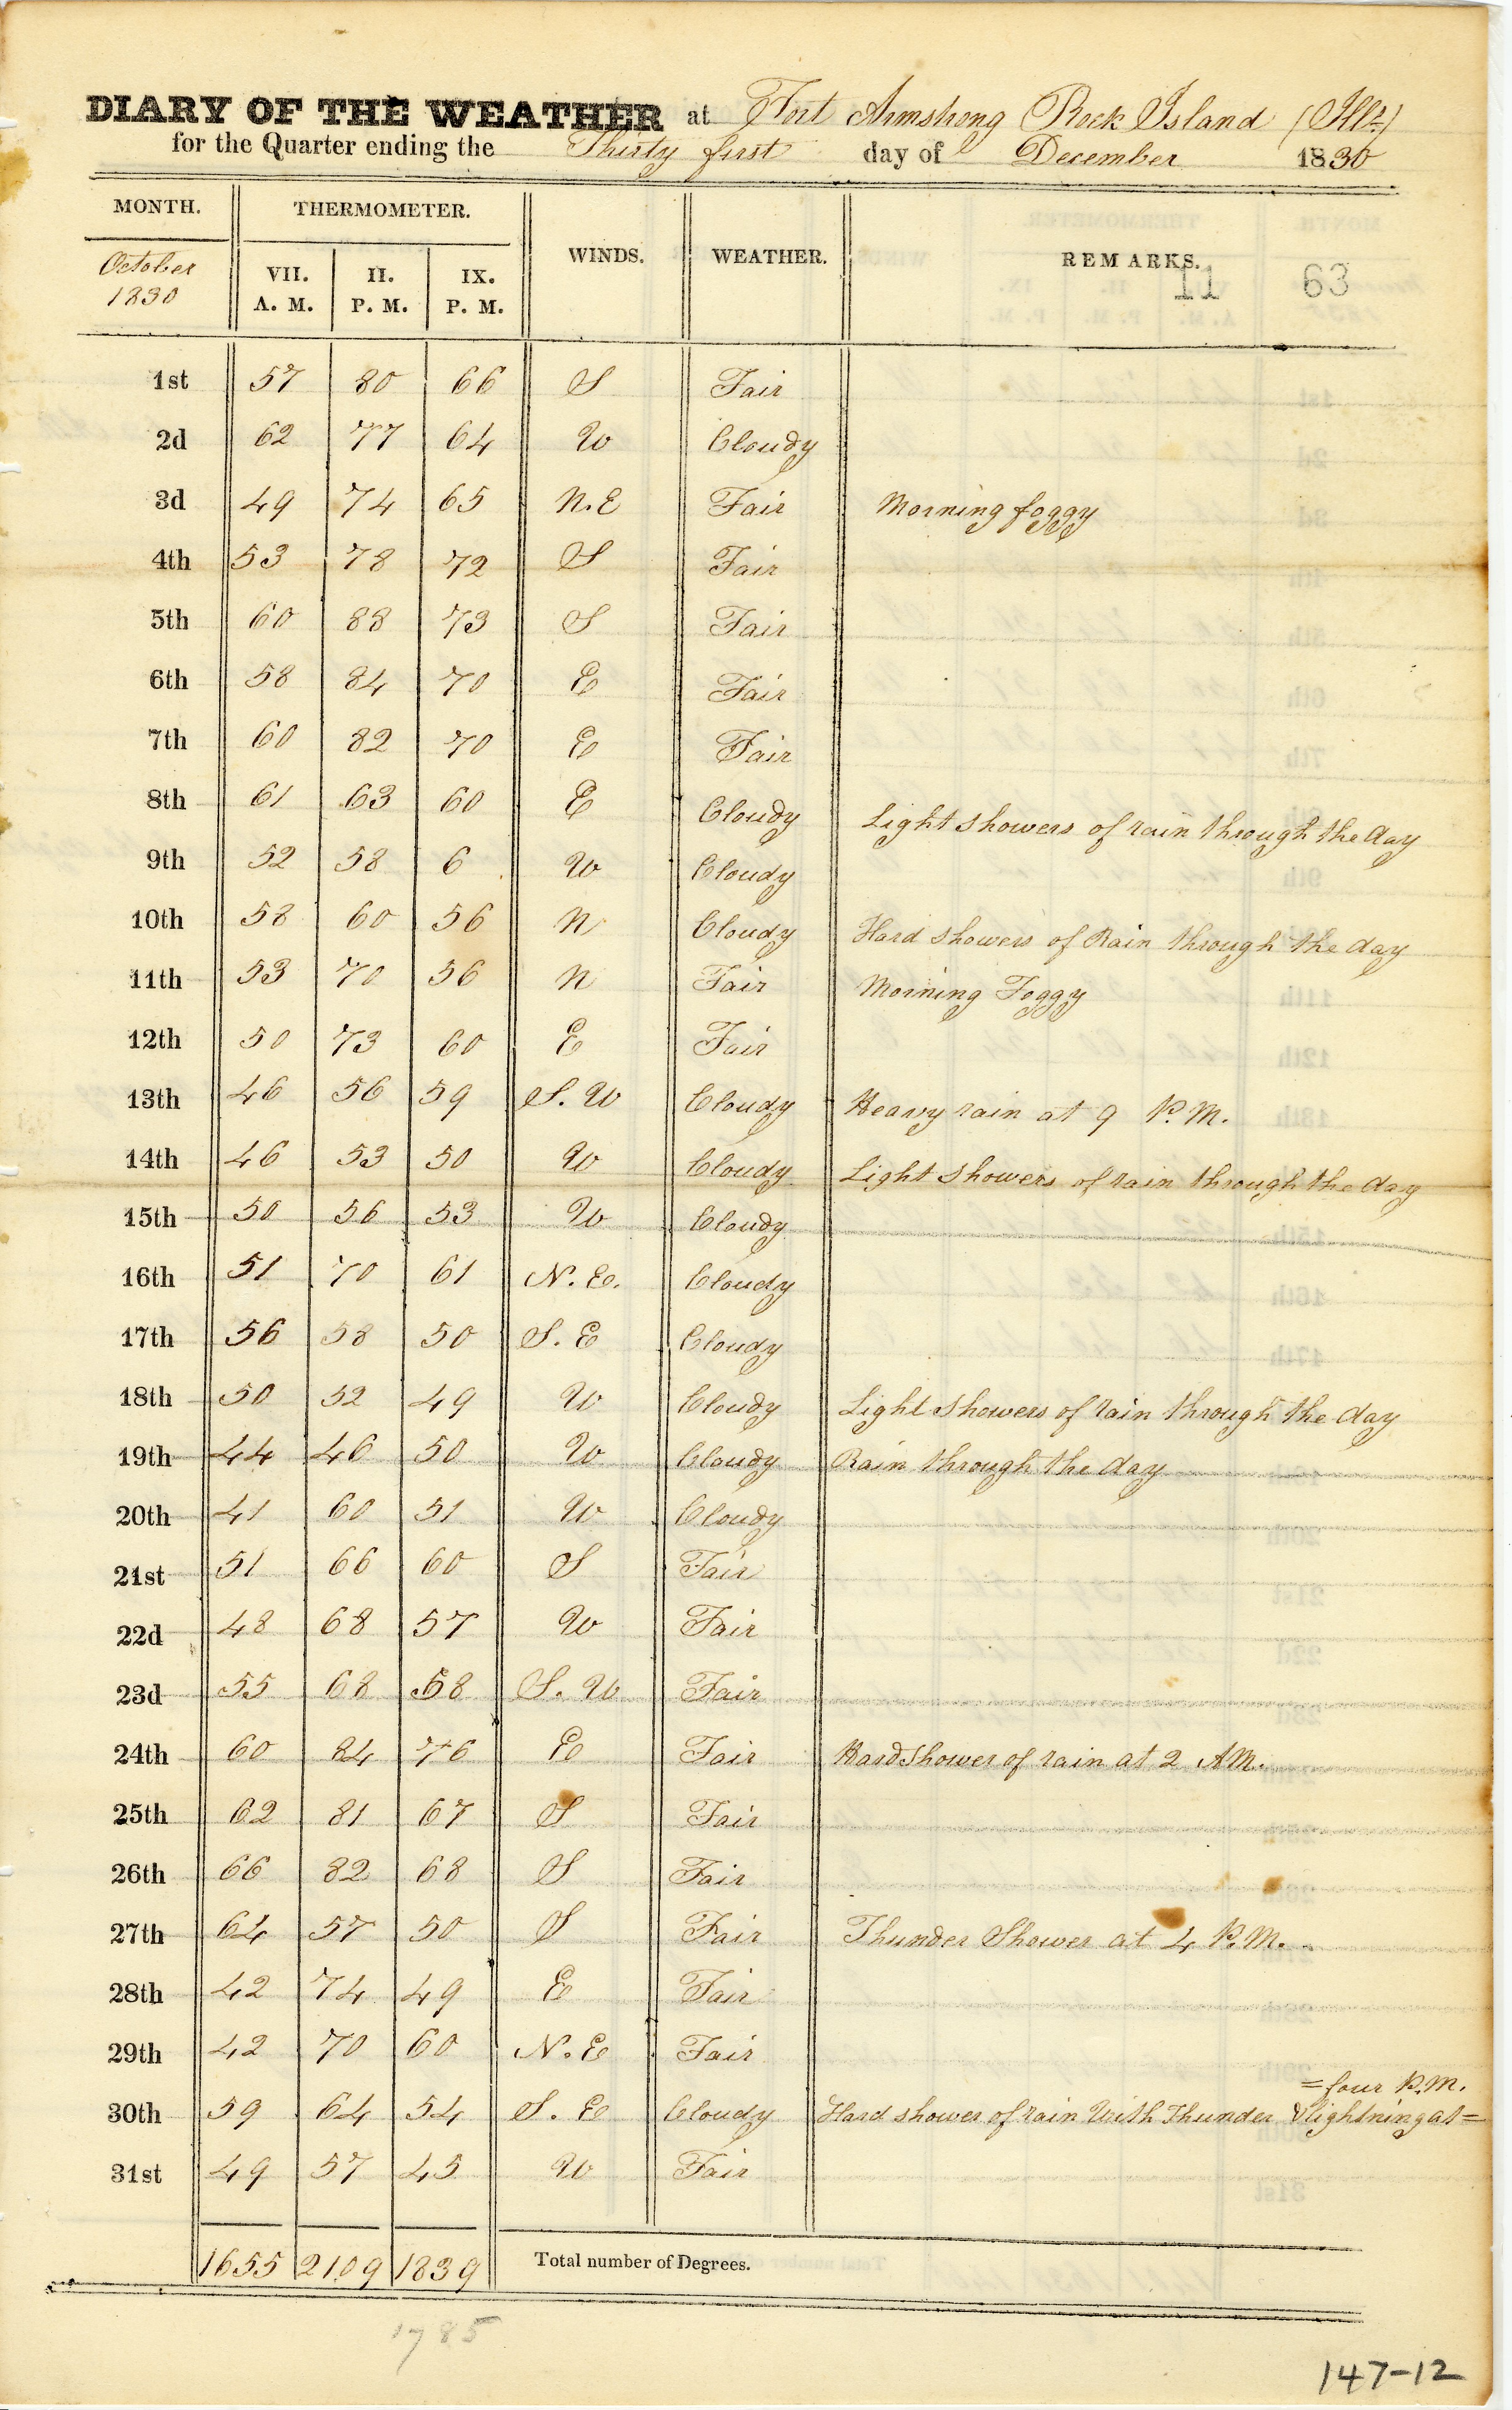 DIARY OF THE WEATHER at Fort Armstrong Rock Island (Ills)
for the Quarter ending the Thirty first day of December 1830
MONTH. THERMOMETER. WINDS. WEATHER. REMARKS.
October 1830 VII. A. M. II. P. M. IX. P. M. 11 63
1st 57 80 66 S Fair
2d 62 77 64 W Cloudy
3d 49 74 65 N.E Fair Morning foggy
4th 53 78 72 S Fair
5th 60 88 73 S Fair
6th 58 84 70 E Fair
7th 60 82 70 E Fair
8th 61 63 60 E Cloudy Light showers of rain through the day
9th 52 58 6 W Cloudy
10th 58 60 56 N Cloudy Hard showers of Rain through the day
11th 53 70 56 N Fair Morning Foggy
12th 50 73 60 E Fair
13th 46 56 59 S. W Cloudy Heavy rain at 9 P.M.
14th 46 53 50 W Cloudy Light showers of rain through the day
15th 50 56 53 W Cloudy
16th 51 70 61 N. E. Cloudy
17th 56 58 50 S. E Cloudy
18th 50 52 49 W Cloudy Light showers of rain through the day
19th 44 46 50 W Cloudy Rain through the day
20th 41 60 51 W Cloudy
21st 51 66 60 S Fair
22d 48 68 57 W Fair
23d 55 68 58 S. W Fair
24th 60 84 76 E Fair Hard Shower of rain at 2 AM.
25th 62 81 67 S Fair
26th 66 82 68 S Fair
27th 64 57 50 S Fair Thunder Shower at 4 P.M.
28th 42 74 49 E Fair
29th 42 70 60 N. E Fair
=four P.M.
30th 59 64 54 S. E Cloudy Hard shower of rain With Thunder & lightning at=
31st 49 57 45 W Fair
1655 2109 1839 Total number of Degrees.
1785
147-12